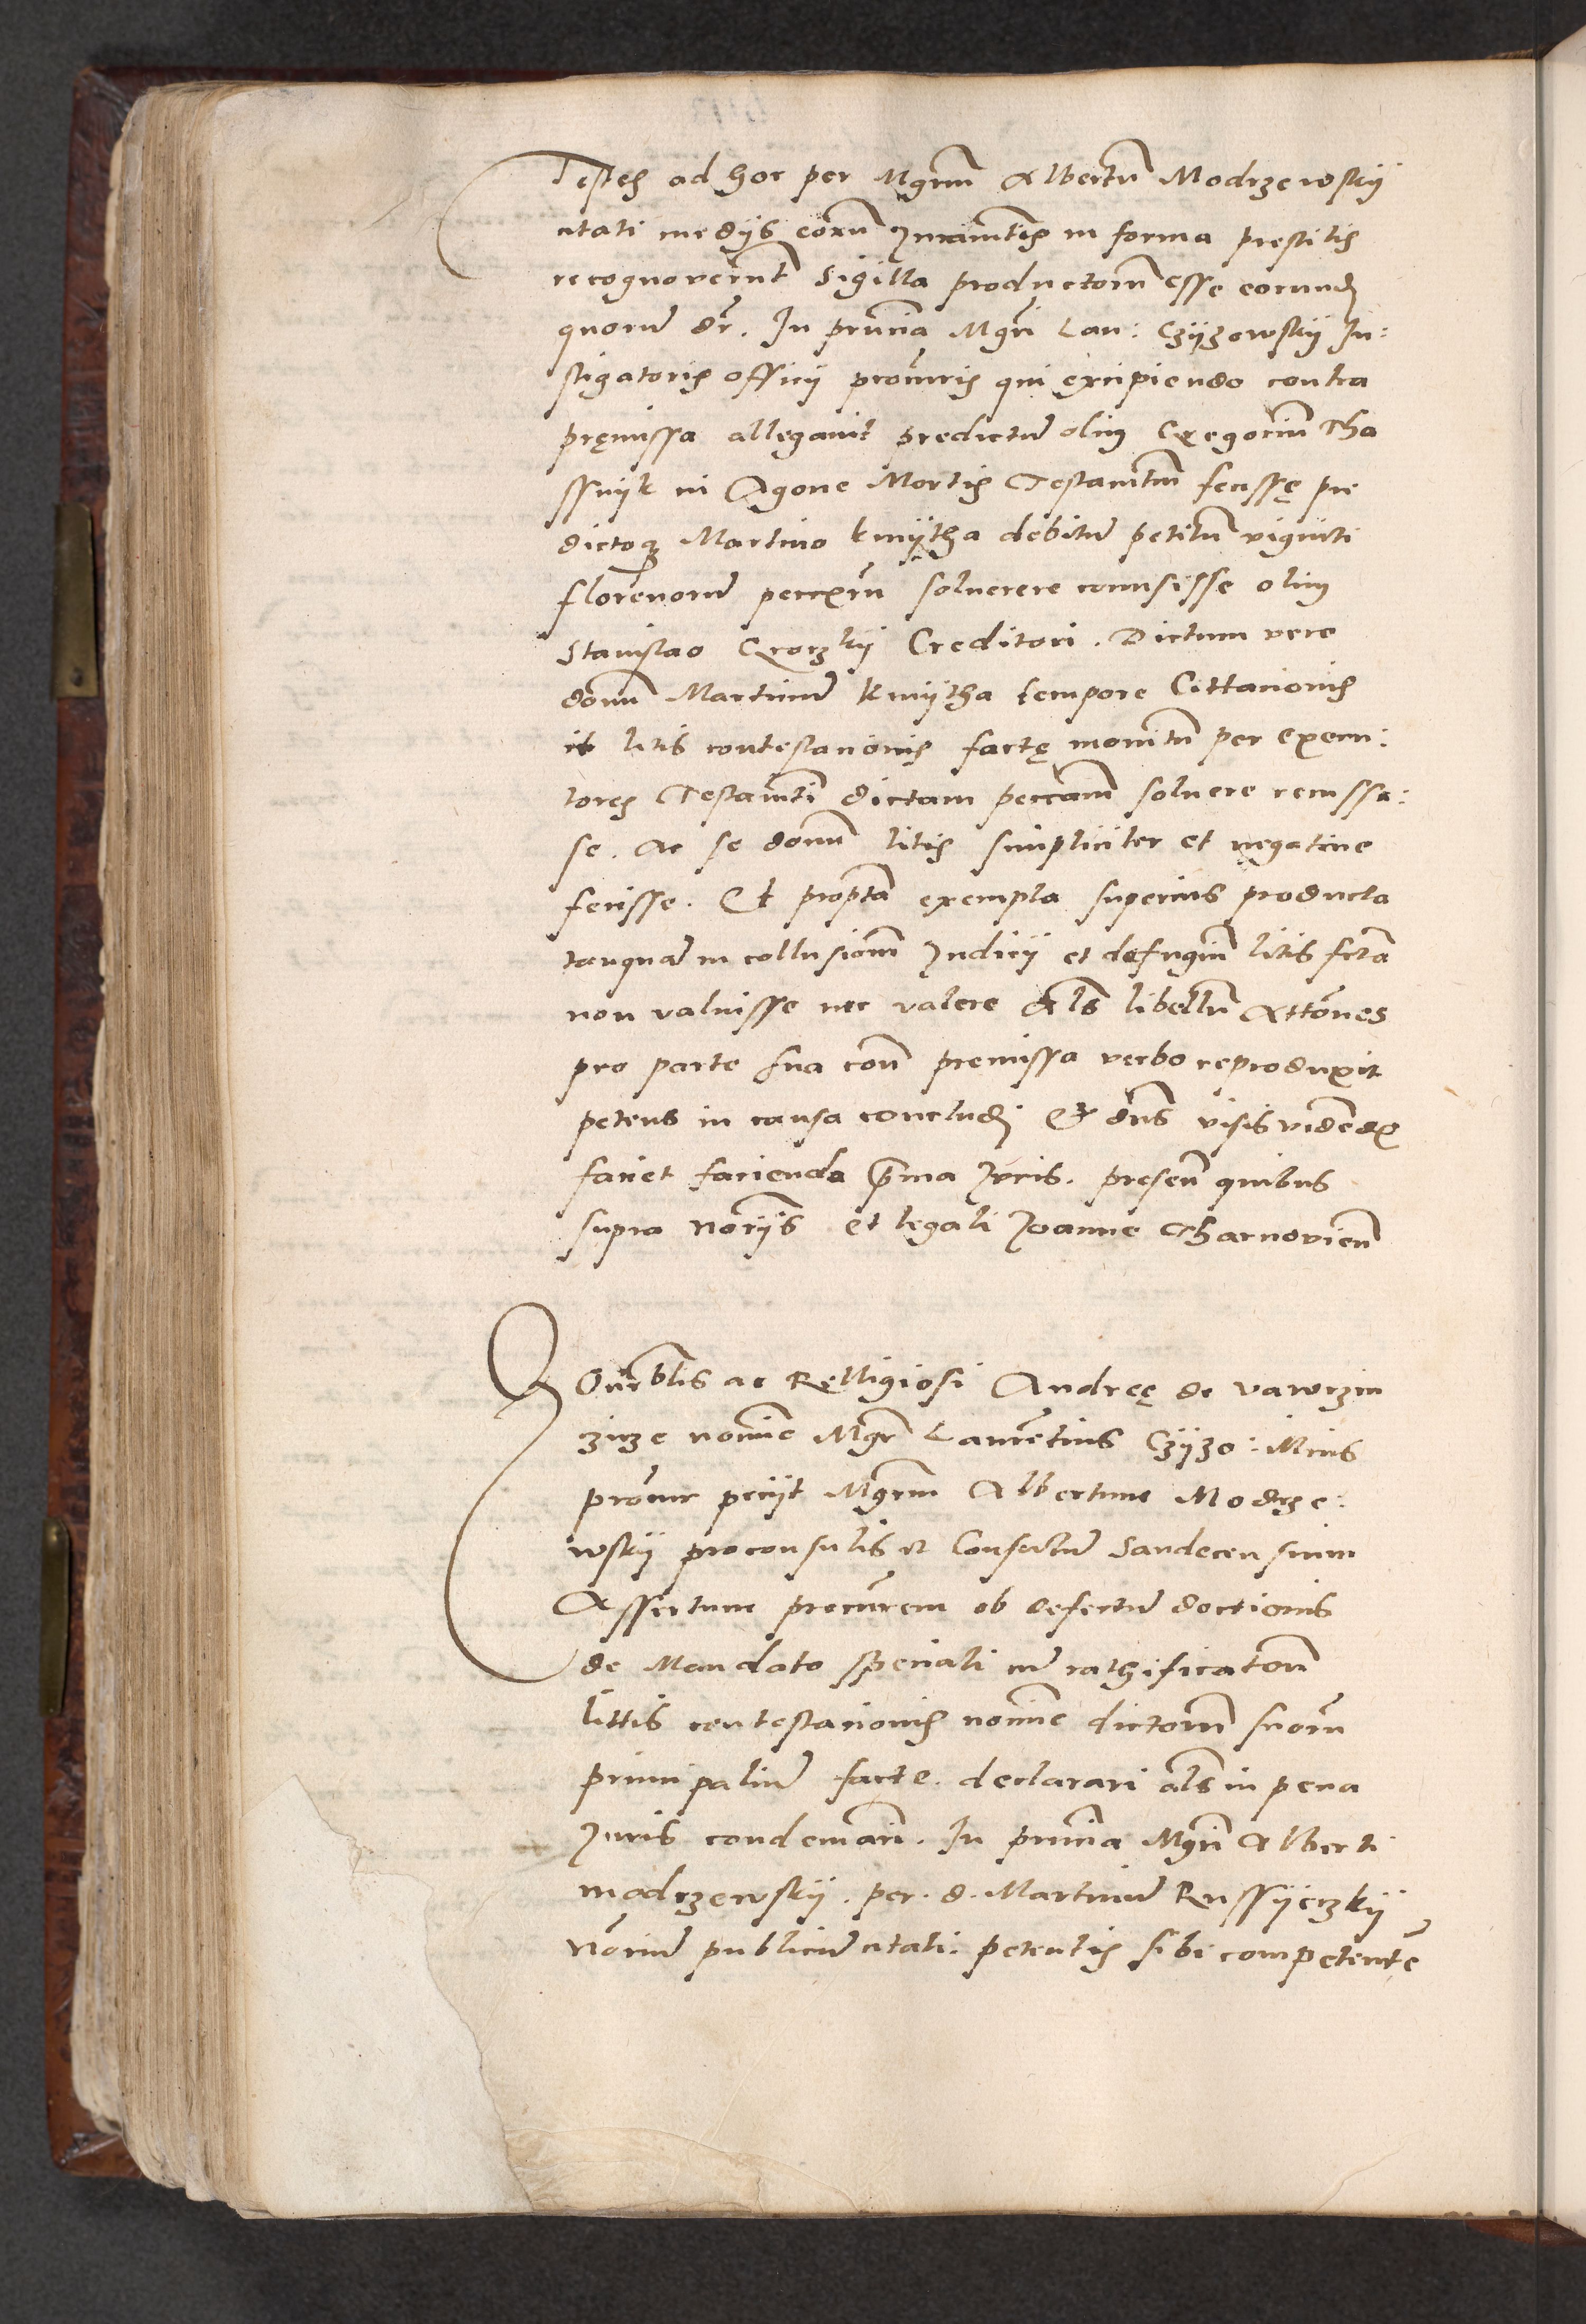 Testes ad hoc per Mgrum Albertum Modrzewskij
citati medijs eorum Juramentis in forma prestitis
recognoverunt Sigilla productorum esse eorund
quorum dr. In pruncia Mgri Lau: Czÿzowskij In:
stigatoris officij procuris qui excipiendo contra
premissa allegavit predictum olim Gregorium Tha
ssnijk in Agone Mortis Testamtum fecisse pre
dictoq Martino kmijtha debitum petitum viginti
florenorum peccxrum soluerere comisisse olim
Stanislao Gorzkij Creditori. Dictum vero
donum Martinum kmijtha tempore Cittacionis
et litis contestacionis facte monitum per execu:
tores Testamti dictam peccam soluere recussa:
se. Ac se donum litis simpliciter et negative
fecisse. Et propta exempla superius producta
tanquam in collusionem Judicij et defugium litis fcta
non valuisse nec valere Als libellum Acttones
pro parte sua coun premissa verbo reproduxit
petens in causa concludj Et dns visis videdx
faciet facienda prma Jvris. presen quibus
supra norijs et legali Joanne Tharnovien
Onrblis ac Relligiosi Andree de vawrzin
zicze nomine Mgr Laurentius Czÿzo: illius
procur peciit Mgrum Albertum Modrze:
wskij proconsulis et Consulum Sandecensium
Assertum procurem ob defectum doctionis
de Mandato speciali cum rathificaton
littis contestacionis nomine dictorum suorum
principalium facte. declarari als in pena
Juris condemari. In pruncia Mgri Alberti
modrzewskij. per. d. Martinum Russijeczkij
norium publicum citati: petentis sibi competente